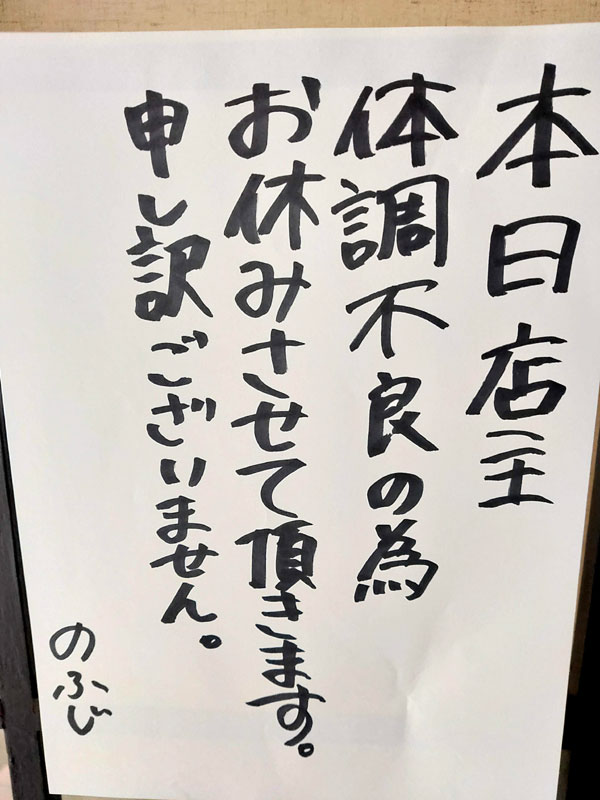 本日店主
体調不良の為
お休みさせて頂きます。
申し訳ございません。
のふじ